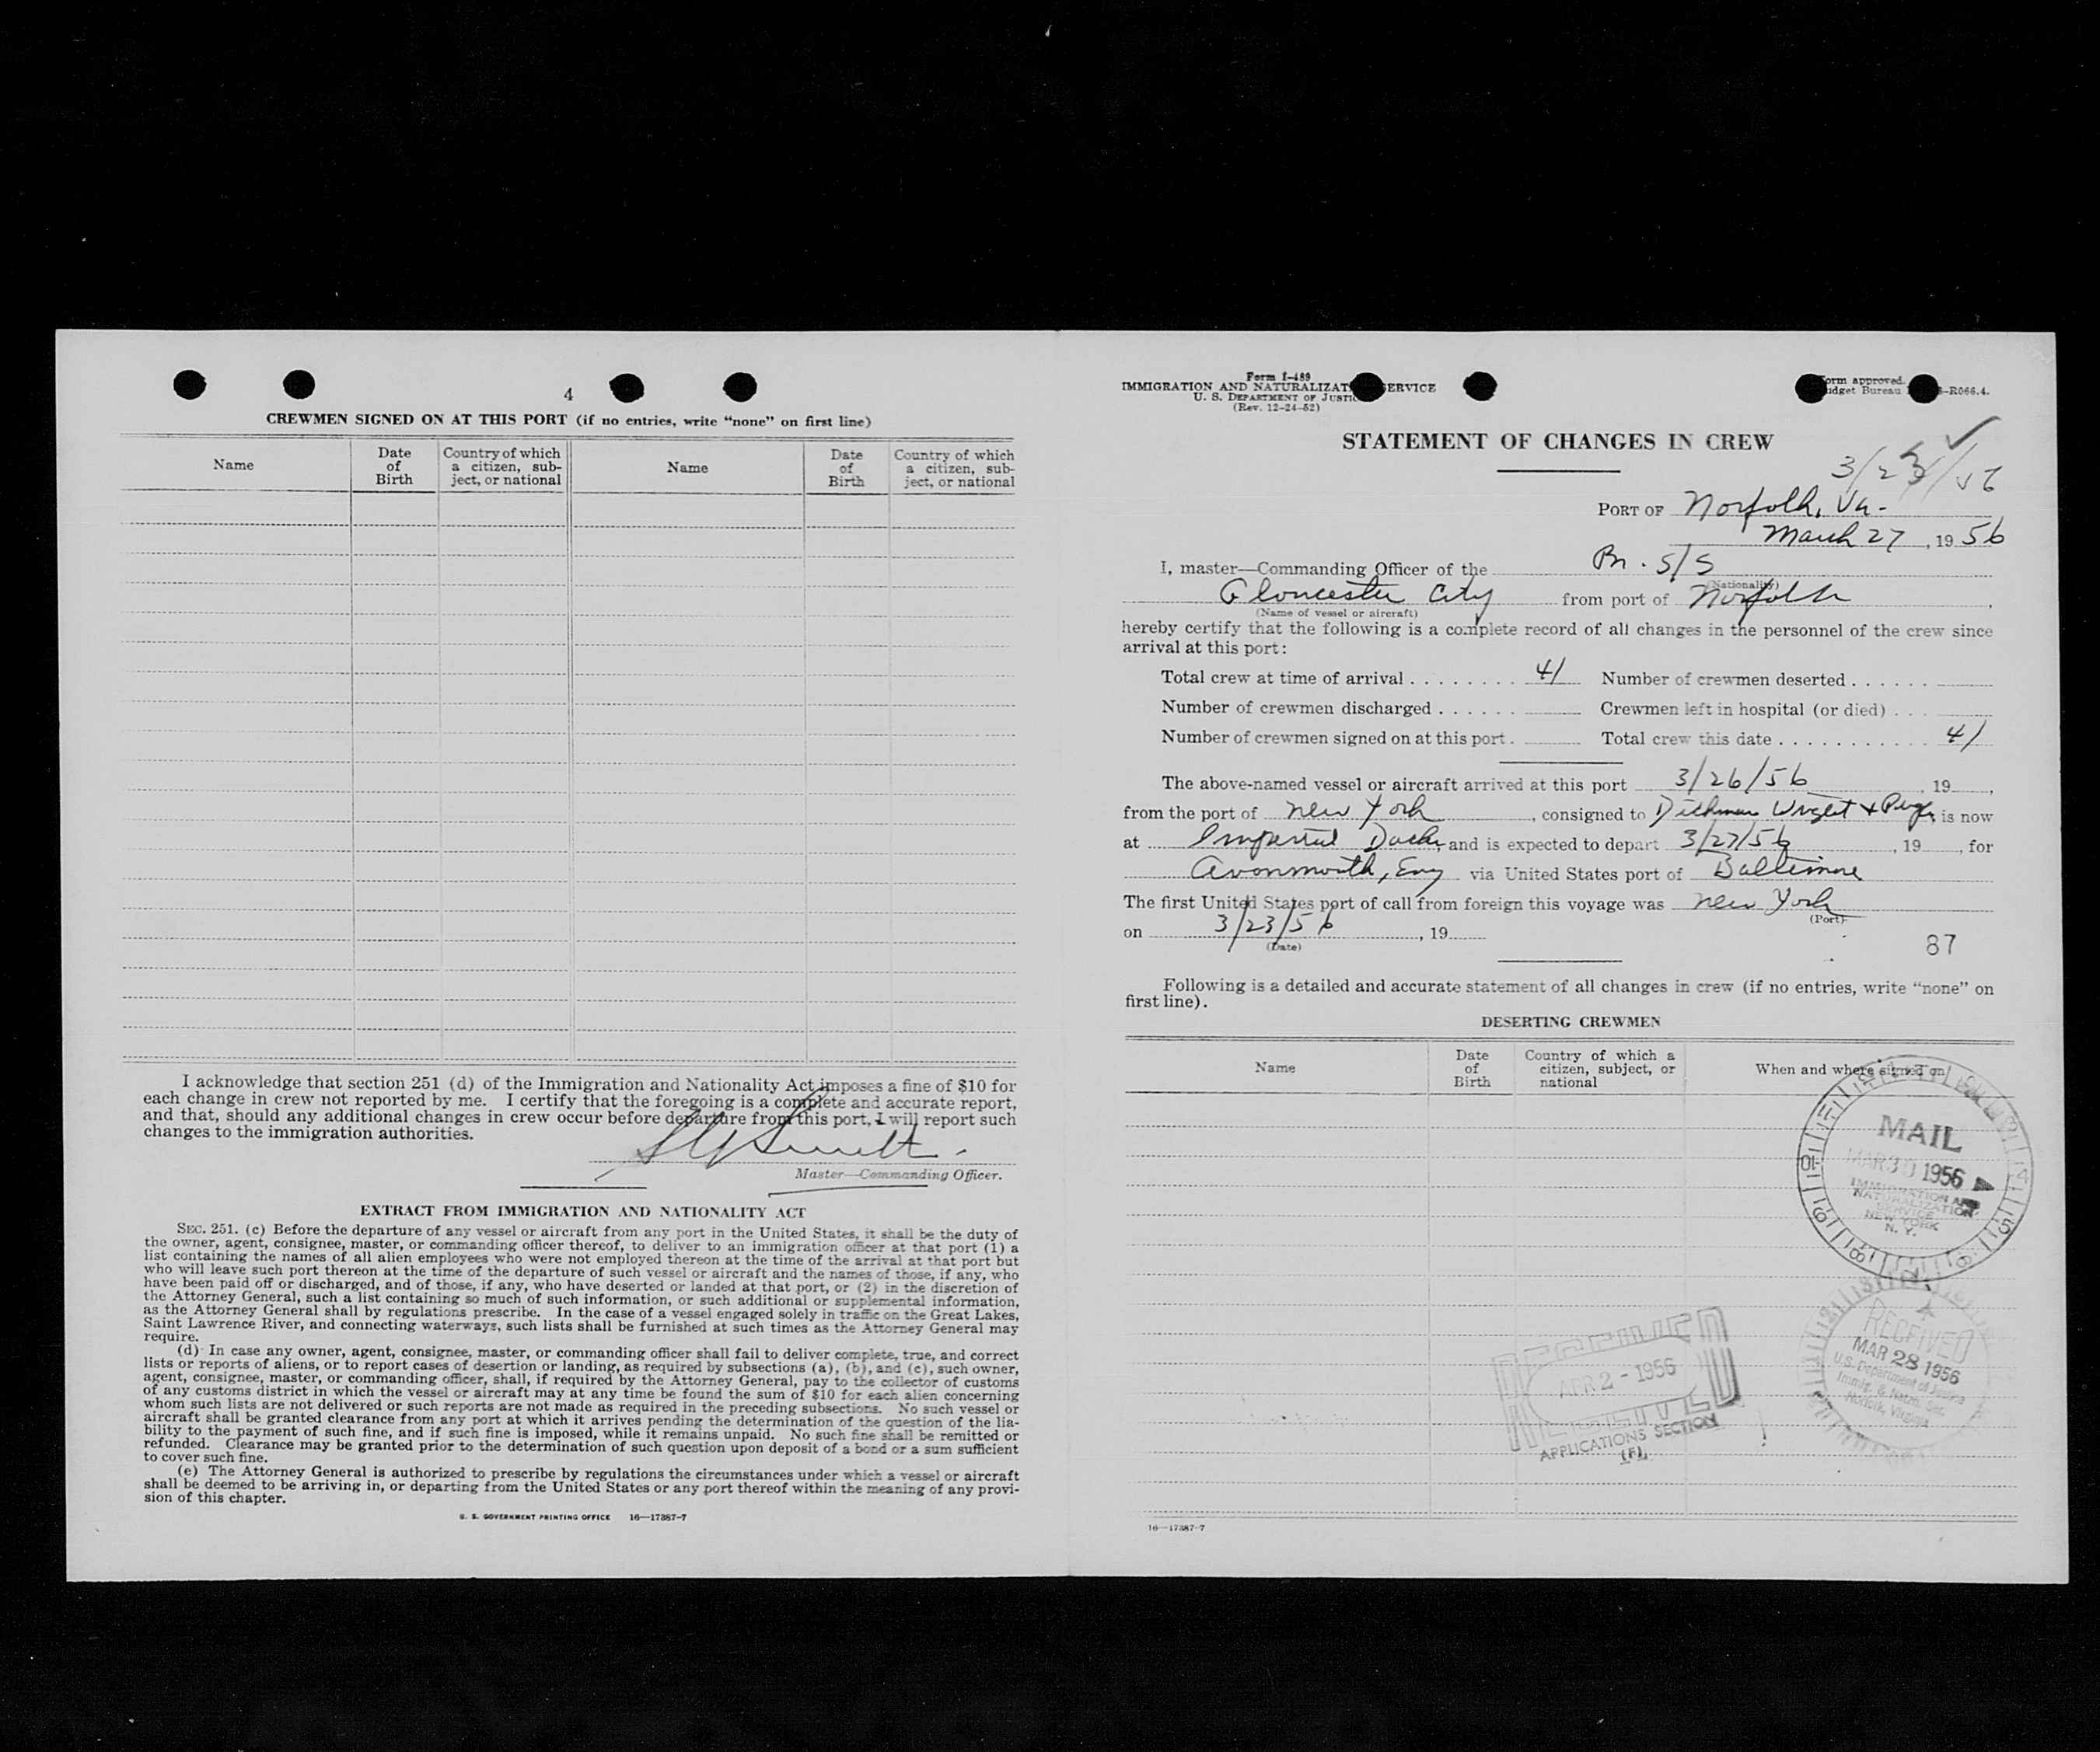 4
CREWMEN SIGNED ON AT THIS PORT (if no entries, write "none" on first line)
Name
Date of Birth
Country of which a citizen, sub-ject, or national
Name
Date of Birth
Country of which a citizen, sub-ject, or national
I acknowledge that section 251 (d) of the Immigration and Nationality Act imposes a fine of $10 for
each change in crew not reported by me. I certify that the foregoing is a complete and accurate report,
and that, should any additional changes in crew occur before departure from this port, I will report such
changes to the immigration authorities.
Master—Commanding Officer.
EXTRACT FROM IMMIGRATION AND NATIONALITY ACT
SEC. 251. (c) Before the departure of any vessel or aircraft from any port in the United States, it shall be the duty of
the owner, agent, consignee, master, or commanding officer thereof, to deliver to an immigration officer at that port (1) a
list containing the names of all alien employees who were not employed thereon at the time of the arrival at that port but
who will leave such port thereon at the time of the departure of such vessel or aircraft and the names of those, if any, who
have been paid off or discharged, and of those, if any, who have deserted or landed at that port, or (2) in the discretion of
the Attorney General, such a list containing so much of such information, or such additional or supplemental information,
as the Attorney General shall by regulations prescribe. In the case of a vessel engaged solely in traffic on the Great Lakes,
Saint Lawrence River, and connecting waterways, such lists shall be furnished at such times as the Attorney General may
require.
(d) In case any owner, agent, consignee, master, or commanding officer shall fail to deliver complete, true, and correct
lists or reports of aliens, or to report cases of desertion or landing, as required by subsections (a), (b), and (c), such owner,
agent, consignee, master, or commanding officer, shall, if required by the Attorney General, pay to the collector of customs
of any customs district in which the vessel or aircraft may at any time be found the sum of $10 for each alien concerning
whom such lists are not delivered or such reports are not made as required in the preceding subsections. No such vessel or
aircraft shall be granted clearance from any port at which it arrives pending the determination of the question of the lia-
bility to the payment of such fine, and if such fine is imposed, while it remains unpaid. No such fine shall be remitted or
refunded. Clearance may be granted prior to the determination of such question upon deposit of a bond or a sum sufficient
to cover such fine.
(e) The Attorney General is authorized to prescribe by regulations the circumstances under which a vessel or aircraft
shall be deemed to be arriving in, or departing from the United States or any port thereof within the meaning of any provi-
sion of this chapter.
U. S. GOVERNMENT PRINTING OFFICE 16—17387-7
Form I-489
IMMIGRATION AND NATURALIZAT SERVICE
U. S. DEPARTMENT OF JUSTIC
(Rev. 12-24-52)
orm approved.
udget Bureau -R066.4.
STATEMENT OF CHANGES IN CREW
3/23/56
PORT OF Norfolk, Va.
March 27, 1956
I, master—Commanding Officer of the Br. S/S
(Nationality)
Gloucester City from port of Norfolk,
(Name of vessel or aircraft)
hereby certify that the following is a complete record of all changes in the personnel of the crew since
arrival at this port:
Total crew at time of arrival . . . . . . . . 41 Number of crewmen deserted . . . . . .
Number of crewmen discharged . . . . . . Crewmen left in hospital (or died) . . .
Number of crewmen signed on at this port . Total crew this date . . . . . . . . . . . 41
The above-named vessel or aircraft arrived at this port 3/26/56, 19 ,
from the port of New York, consigned to Wright + is now
at Imperial Docks, and is expected to depart 3/27/56, 19 , for
Avonmouth, Eng via United States port of Baltimore
The first United States port of call from foreign this voyage was New York
(Port)
on 3/23/56, 19
(Date)
87
Following is a detailed and accurate statement of all changes in crew (if no entries, write "none" on
first line).
DESERTING CREWMEN
Name
Date of Birth
Country of which a citizen, subject, or national
When and where signed on
MAIL
MAR 30 1956
IMMIGRATION AND
NATURALIZATION
SERVICE
NEW YORK
N. Y.
RECEIVED
MAR 28 1956
U.S. Department of Justice
Immig. & Natzn. Ser.
Norfolk, Virginia
RECEIVED
APR 2 - 1956
APPLICATIONS SECTION
16—17387-7